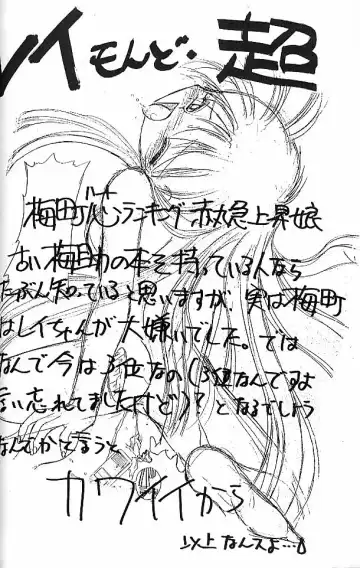 レイもんど・超
梅町ハートランキング赤丸急上昇娘
古い梅町の本を持っている人なら
たぶん知っていると思いますが、実は梅町
はレイちゃんが大嫌いでした。では
なんで今は3位なの(3位なんですよ
言い忘れてましたけど)?となるでしょう
なんでかと言うと
カワイイから
以上なんスよ…